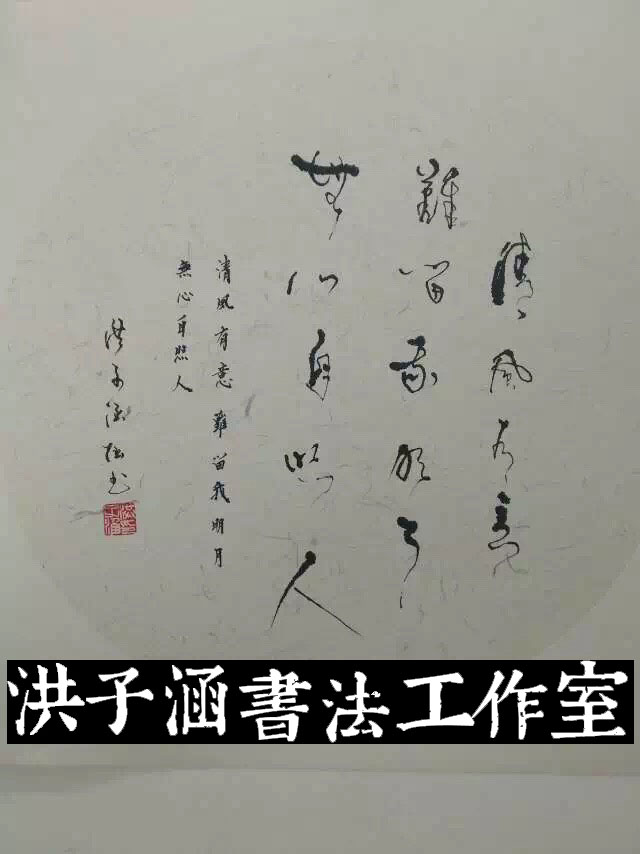 清風有意
難留我明月
無心自照人
清風有意難留我明月
無心自照人
洪子涵书
洪子涵書法工作室